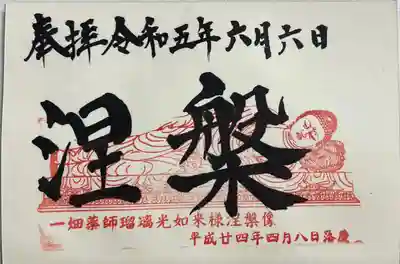 奉拝令和五年六月六日
涅槃
一畑薬師瑠璃光如来様涅槃像
平成廿四年四月八日落慶